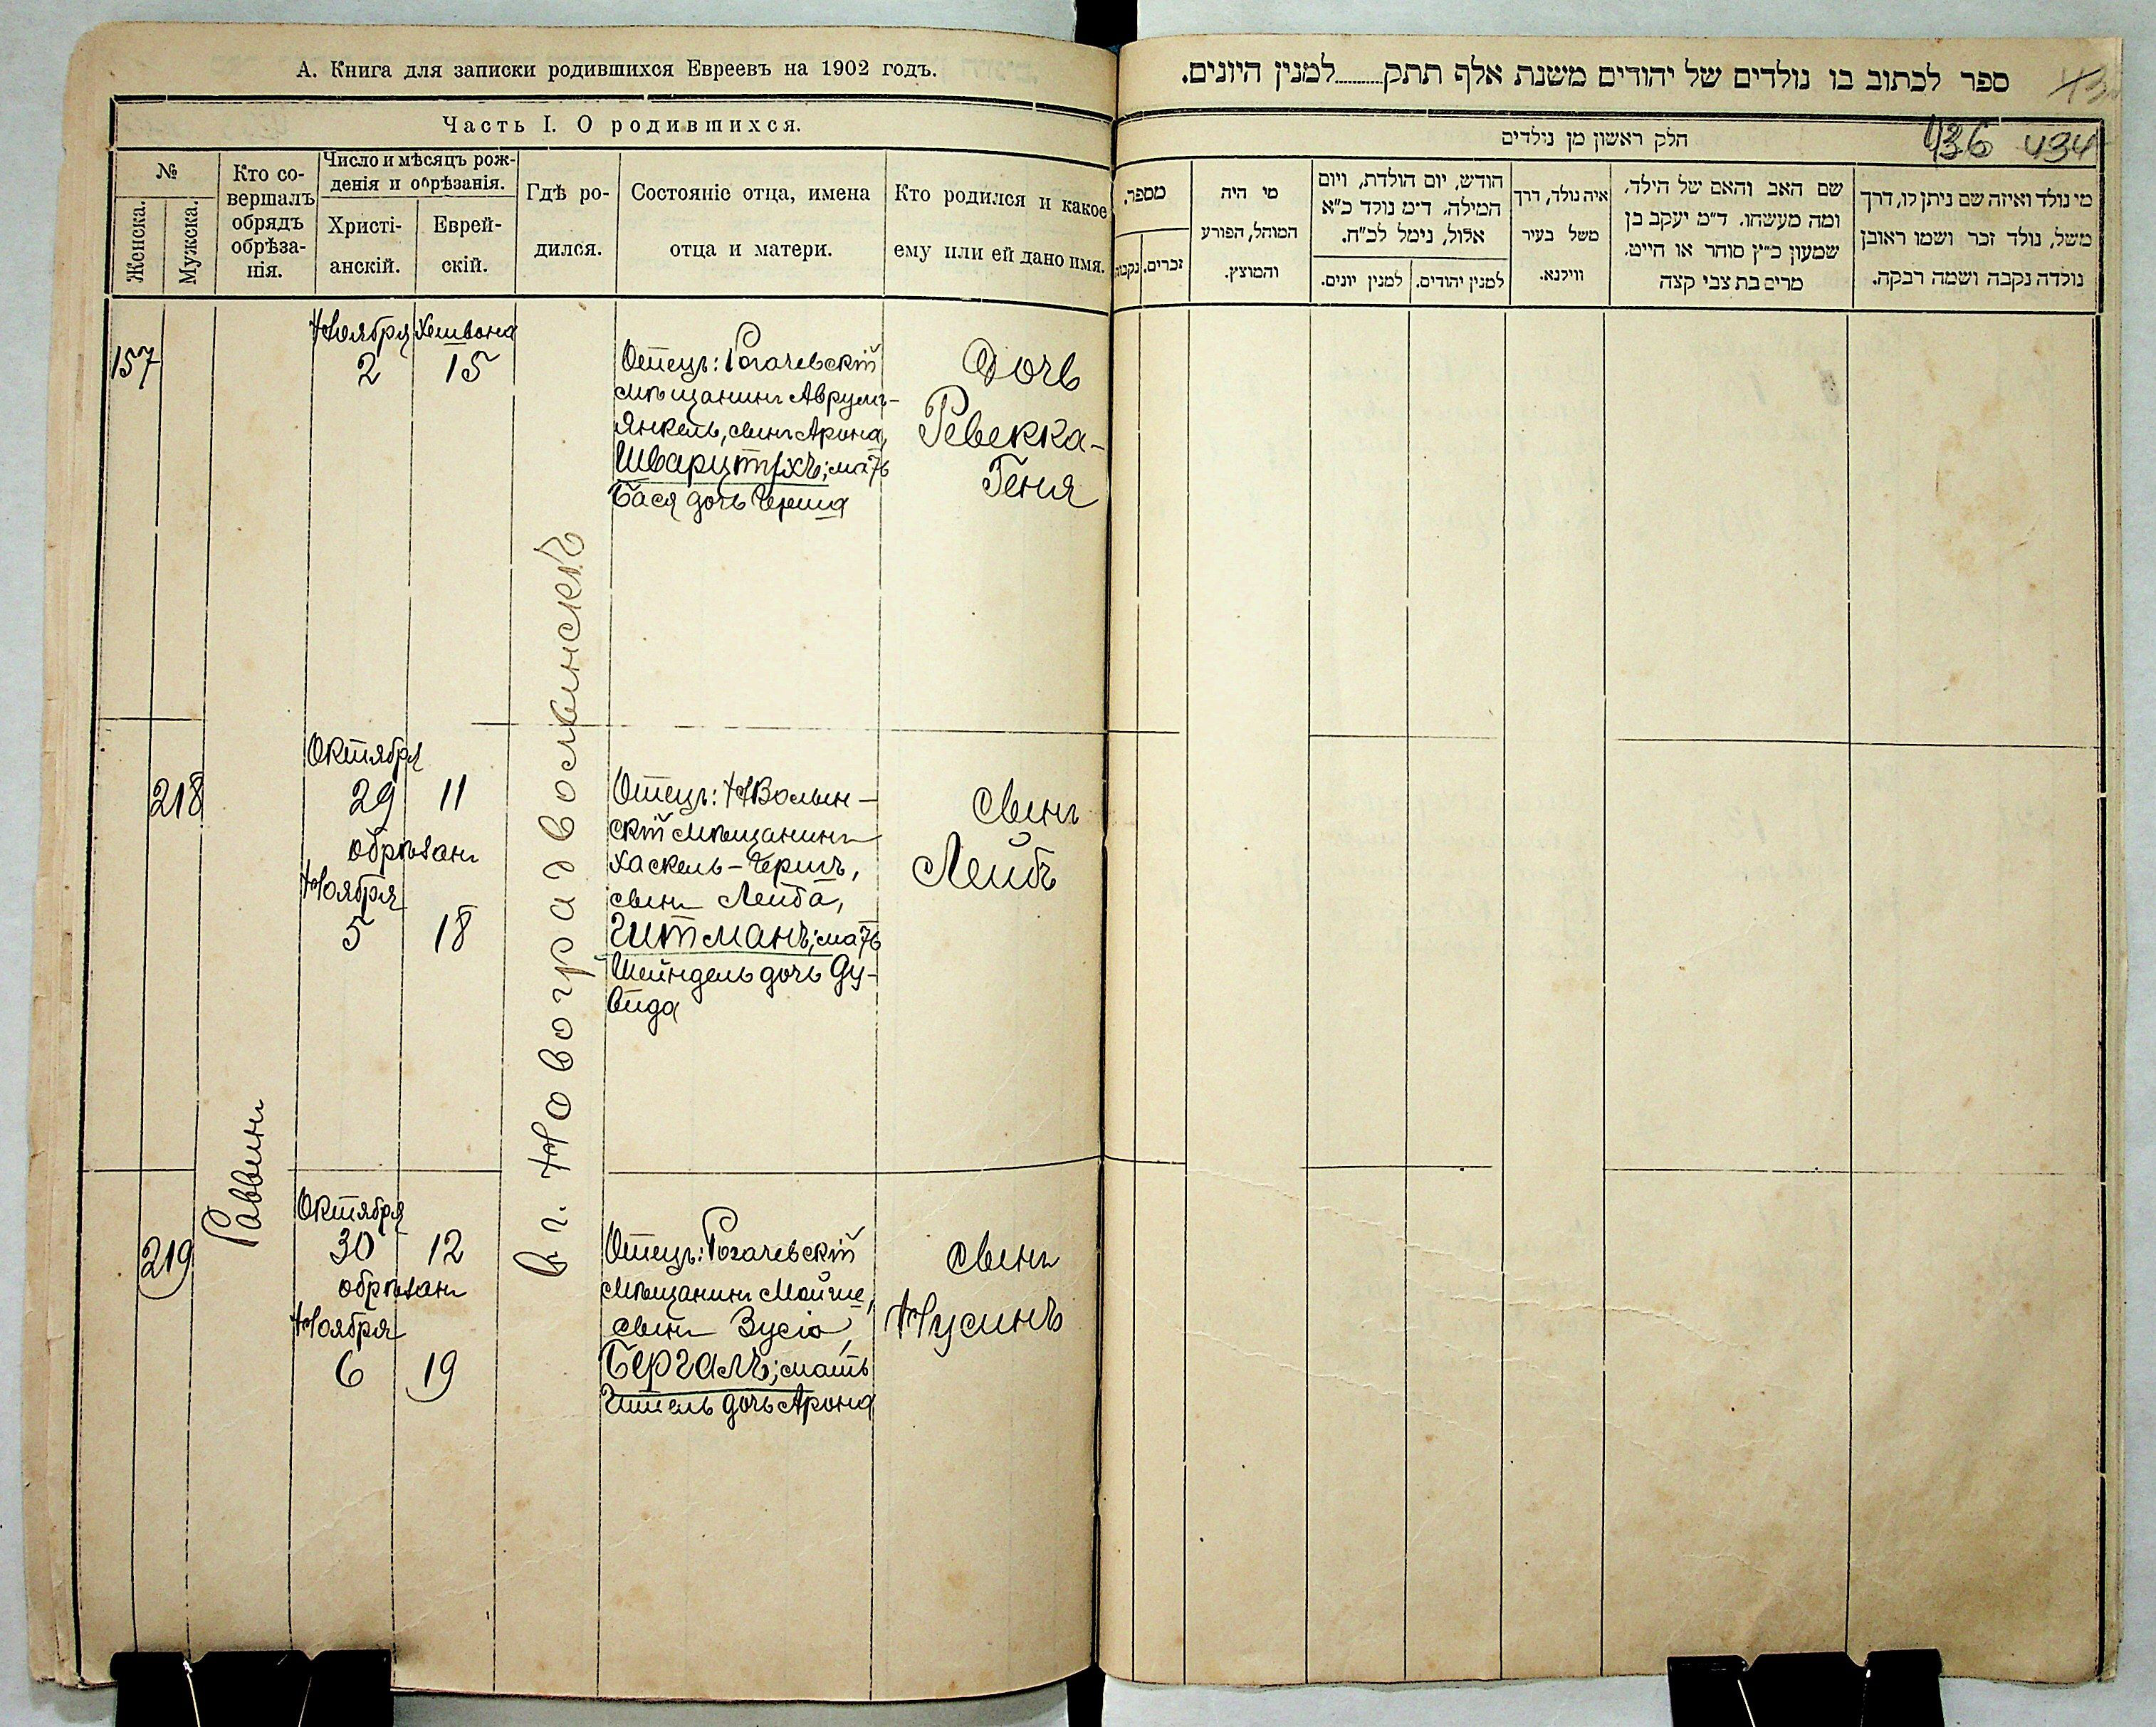 А. Книга для записки родившихся Евреевъ на 1902 годъ.
Часть I. О родившихся.
№
Женска.
Мужска.
Кто со-
вершалъ
обрядъ
обрѣза-
нія.
Число и мѣсяцъ рож-
денія и обрѣзанія.
Христі-
анскій.
Еврей-
скій.
Гдѣ ро-
дился.
Состояніе отца, имена
отца и матери.
Кто родился и какое
ему или ей дано имя.
157
Ноября
Хешвона
2
15
Отецъ: Рогачевскій
мѣщанинъ Аврумъ-
Янкель, сынъ Арона,
Шварцтухъ; мать
Бася дочь Герша
Дочь
Ревекка-
Геня
218
Октября
29
11
обрѣзанъ
Ноября
5
18
Отецъ: НВолын-
скій мѣщанинъ
Хаскель-Гершъ,
сынъ Лейба,
Гитманъ; мать
Шейндель дочь Ду-
вида
Сынъ
Лейбъ
219
Раввинъ
Октября
30
12
обрѣзанъ
Ноября
6
19
в г. Новоградволынскѣ
Отецъ: Рогачевскій
мѣщанинъ Мойше,
сынъ Зусія,
Бергалъ; мать
дочь Арона
Сынъ
Нусинъ
ספר לכתוב בו נולדים של יהודים משנת אלף תתק.......... למנין היונים.
436 434
חלק ראשון מן נולדים
מי נולד ואיזה שם ניתן לו, דרך
משל, נולד זכר ושמו ראובן
נולדה נקבה ושמה רבקה.
שם האב והאם של הילד,
ומה מעשהו. ד״מ יעקב בן
שמעון כ״ץ סוחר או חייט.
מרים בת צבי קצה
איה נולד, דרך
משל בעיר
ווילנא.
חודש, יום הולדת, ויום
המילה. ד״מ נולד כ״א
אלול, נימל לכ״ח.
למנין יהודים.
למנין יונים.
מי היה
המוהל, הפורע
והמוצץ.
מספר.
זכרים.
נקבות